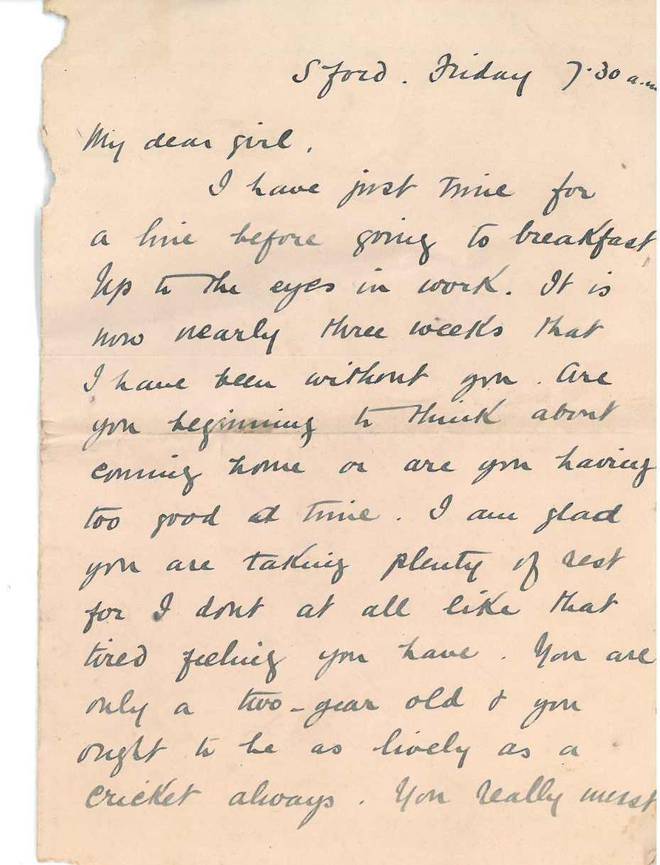 Sford. Friday 7.30 a.m
My dear girl,
I have just time for
a line before going to breakfast
Up to the eyes in work. It is
now nearly three weeks that
I have been without you. Are
you beginning to think about
coming home or are you having
too good a time. I am glad
you are taking plenty of rest
for I dont at all like that
tired feeling you have. You are
only a two-year old & you
ought to be as lively as a
cricket always. You really must